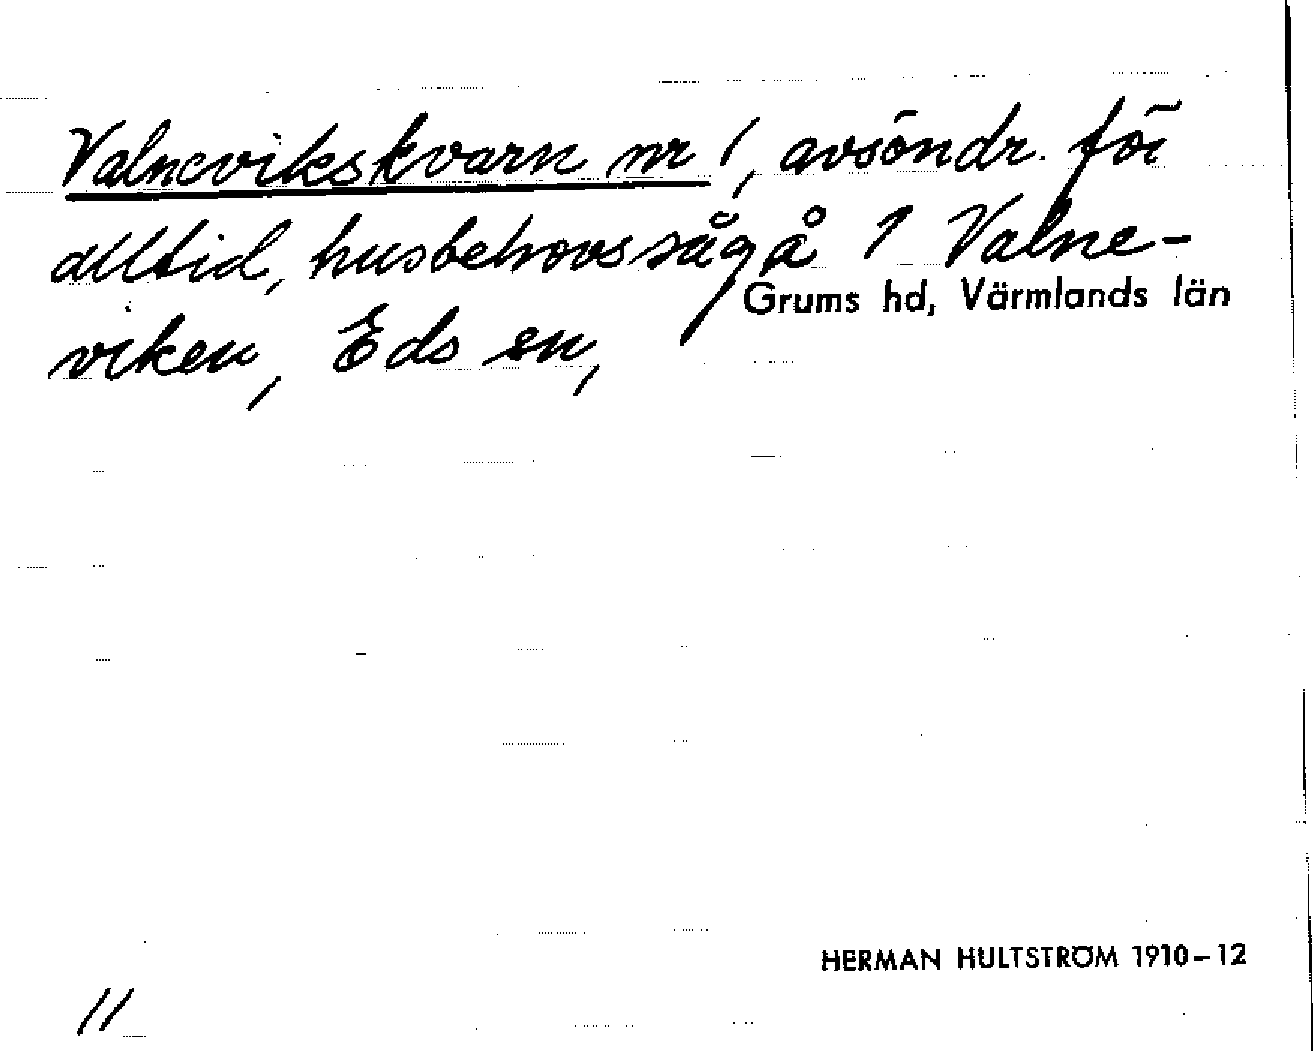 Valnevikskvarn nr 1, avsöndr. för
alltid, husbehovssåg å 1 Valne-
viken, Eds sn,
Grums hd, Värmlands län
HERMAN HULTSTRÖM 1910-12
11